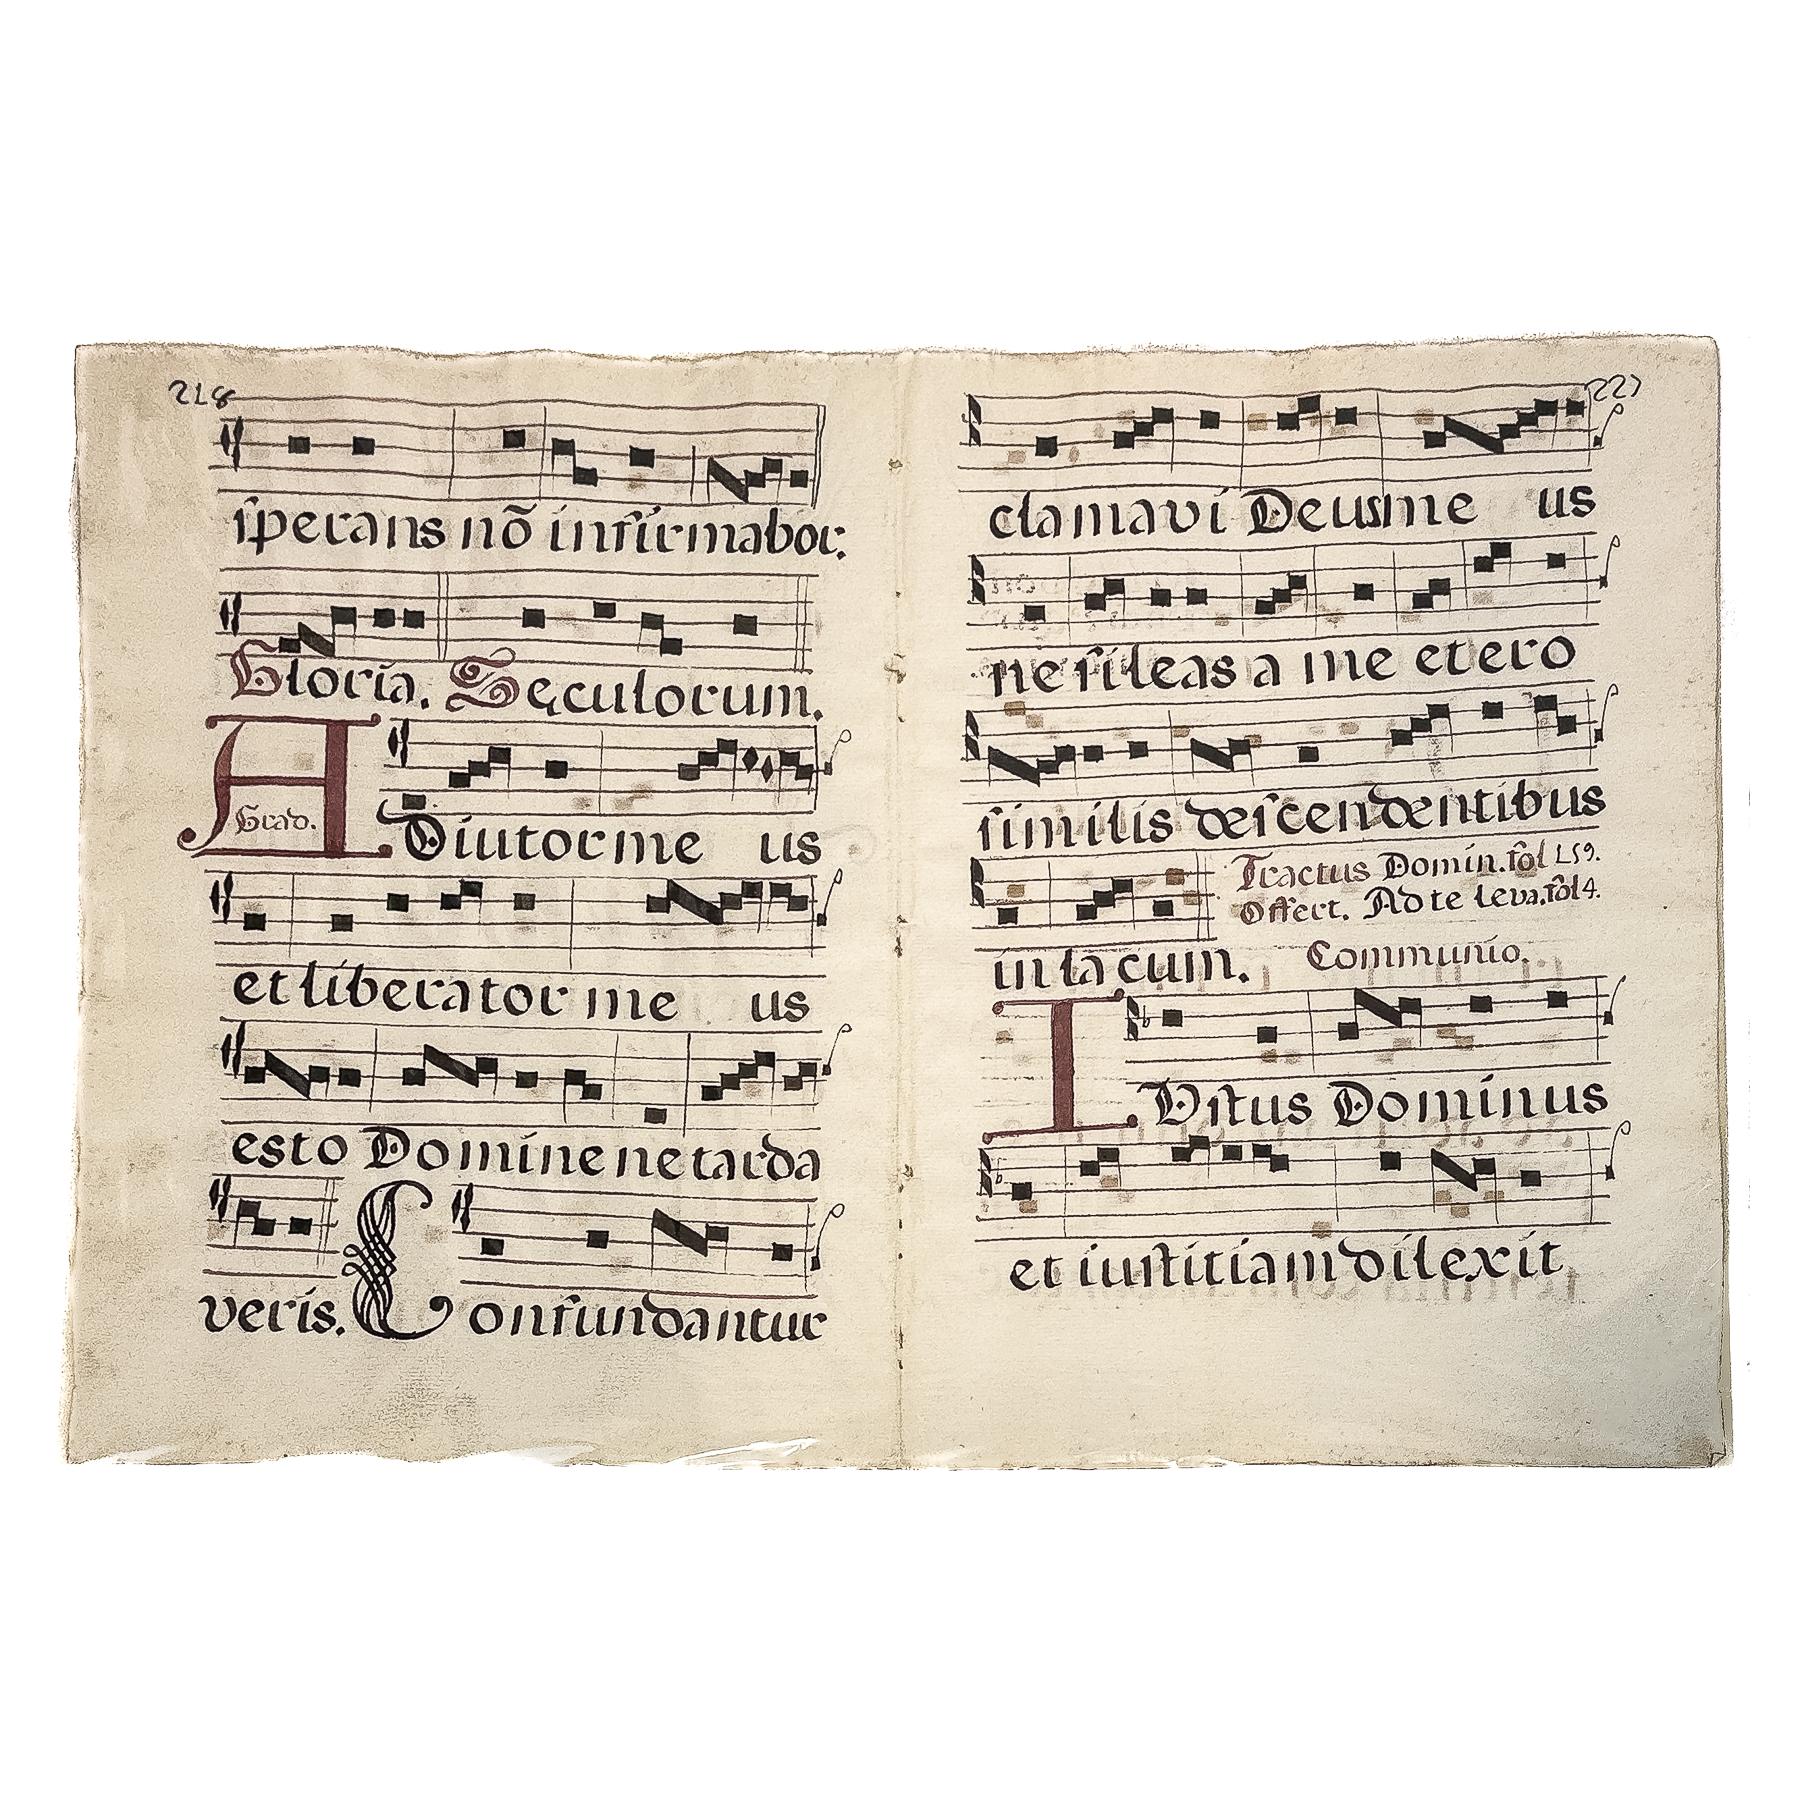 218
sperans nõ infirmabor.
Gloria. Seculorum.
Grad.
ADiutor me us
et liberator me us
esto Domine ne tarda
veris. Confundantur
227
clamavi Deus me us
ne sileas a me et ero
similis descendentibus
Tractus Domin. fôl 159.
Offert. Ad te leva. fôl 4.
in lacum. Communio.
IVstus Dominus
et iustitiam dilexit